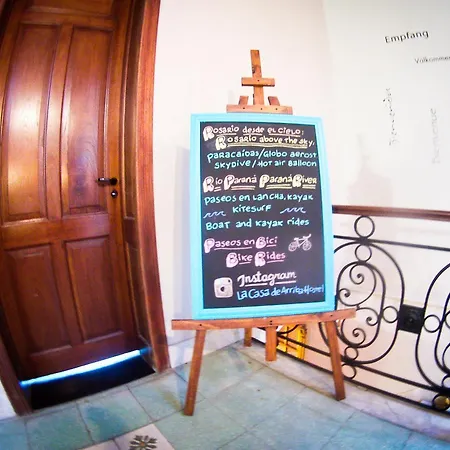 Empfang
Willkommen
Rosario desde el cielo:
Rosario above the sky,
Paracaídas/Globo aerost
Skydive/Hot air balloon
Río Paraná Paraná River
Paseos en lancha, kayak
kitesurf
Boat and kayak rides
Paseos en Bici
Bike Rides
Instagram
La Casa de Arriba Hostel